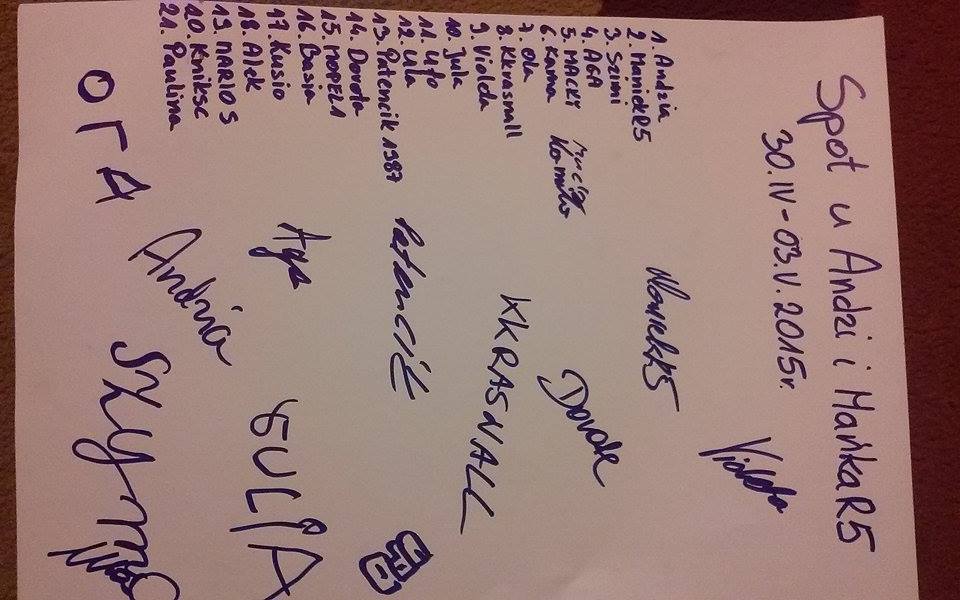 Spot u Andzi i MańkaR5
30.IV-03.V.2015r.
1. Andzia
2. ManiekR5
3. Szimi
4. AGA
5. MACKY
6. Kama
7. Ola
8. KKrasnall
9. Violeta
10. Julk
11. Ufo
12. Ula
13. Patencik 1987
14. Dorota
15. MOPEL1
16. Basia
17. Kusio
18. Alek
19. MARIO S
20. Kmiksc
21. Paulina
Violeta
ManiekR5
Dorota
KKRASNALL
Patencik
Aga
JULIA
Andzia